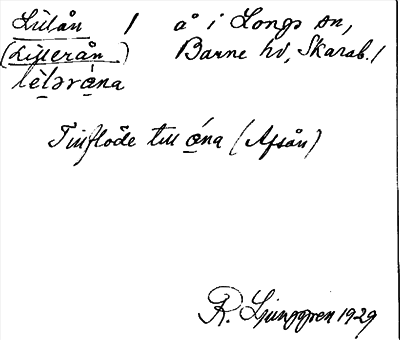 Lillån / å i Longs sn,
(Lillerån) Barne hd, Skarab. /
lèlərána
Tillflöde till ána (Afsån)
R. Ljunggren 1929